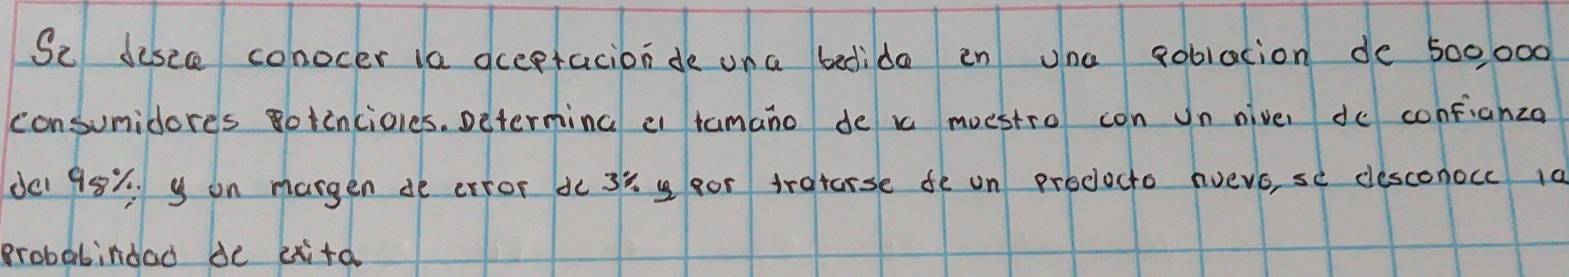 Se desea conocer la aceptación de una bedida en una poblacion de 500,000
consumidores potenciales. Determina el tamaño de la muestra con un nivel de confianza
del 98%; y un margen de error de 3% y por tratarse de un producto nuevo, se desconoce la
probabindad de exita